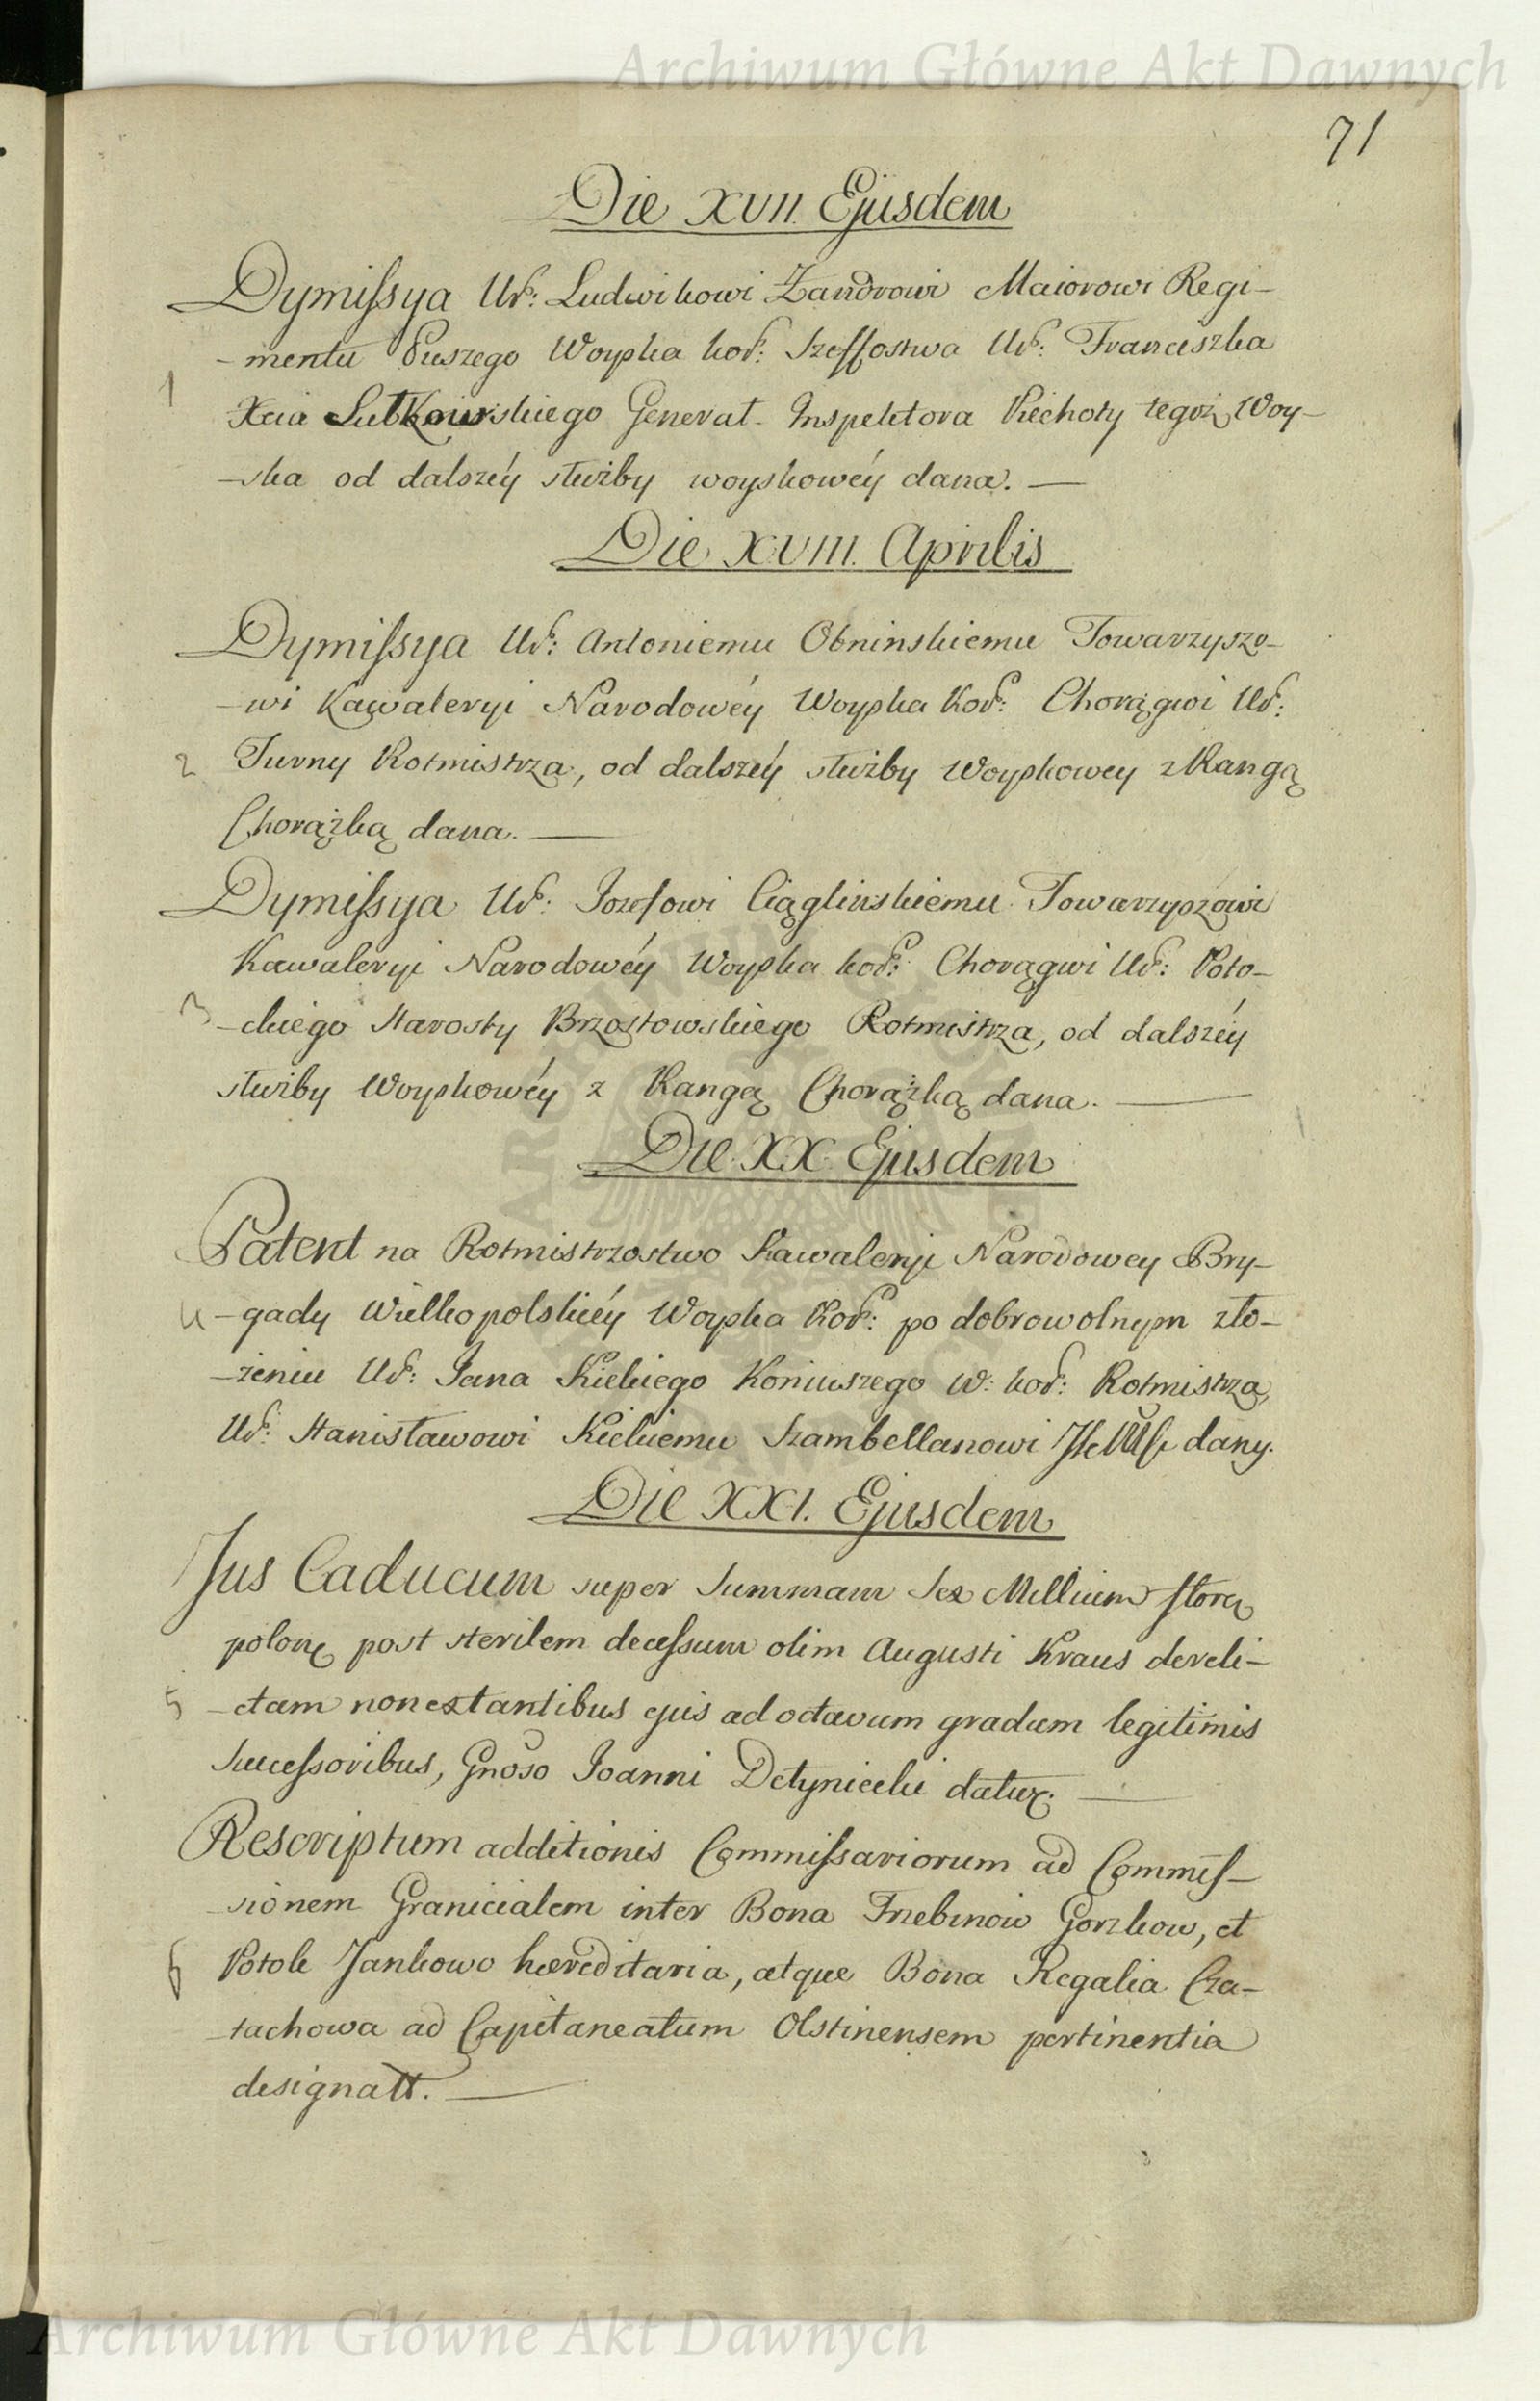 Archiwum Główne Akt Dawnych
71
Die XVII. Ejusdem
Dymissya Ur: Ludwikowi Zandrowi Maiorowi Regi-
-mentu Puszego Woyska kor: Szeffostwa Ur: Franciszka
1
Xcia Sułkowskiego Generał. Inspektora Piechoty tegoż Woy-
-ska od dalszéy służby woyskowéy dana.
Die XVIII. Aprilis
Dymissya Ur: Antoniemu Obninskiemu Towarzyszo-
-wi Kawaleryi Narodowéy Woyska Kor: Chorągwi Ur:
2 Turny Rotmistrza, od dalszéy służby Woyskowey z Rangą
Chorążką dana.
Dymissya Ur: Jozefowi Ciąglinskiemu Towarzyszowi
Kawaleryi Narodowéy Woyska kor: Chorągwi Ur: Poto-
3 -ckiego Starosty Brzostowskiego Rotmistrza, od dalszéy
służby Woyskowéy z Rangą Chorążką dana.
Die XX Ejusdem
Patent na Rotmistrzostwo Kawaleryi Narodowey Bry-
4 -gady Wielkopolskiéy Woyska Kor: po dobrowolnym zło-
-żeniu Ur: Jana Kickiego Koniuszego W: kor: Rotmistrza,
Ur: Stanisławowi Kickiemu Szambellanowi dany.
Die XXI. Ejusdem
Jus Caducum super Summam Sex Millium flor
polon post sterilem decessum olim Augusti Kraus dereli-
5 -ctam non extantibus ejus ad octavum gradum legitimis
Successoribus, Gnoso Joanni Detynicki datur.
Rescriptum additionis Commissariorum ad Commis-
-sionem Granicialem inter Bona Trzebinow Gorzkow, et
6 Potok Jankowo hæreditaria, atque Bona Regalia Cza-
-tachowa ad Capitaneatum Olstinensem pertinentia
designatt.
ARCHIWUM
Archiwum Główne Akt Dawnych